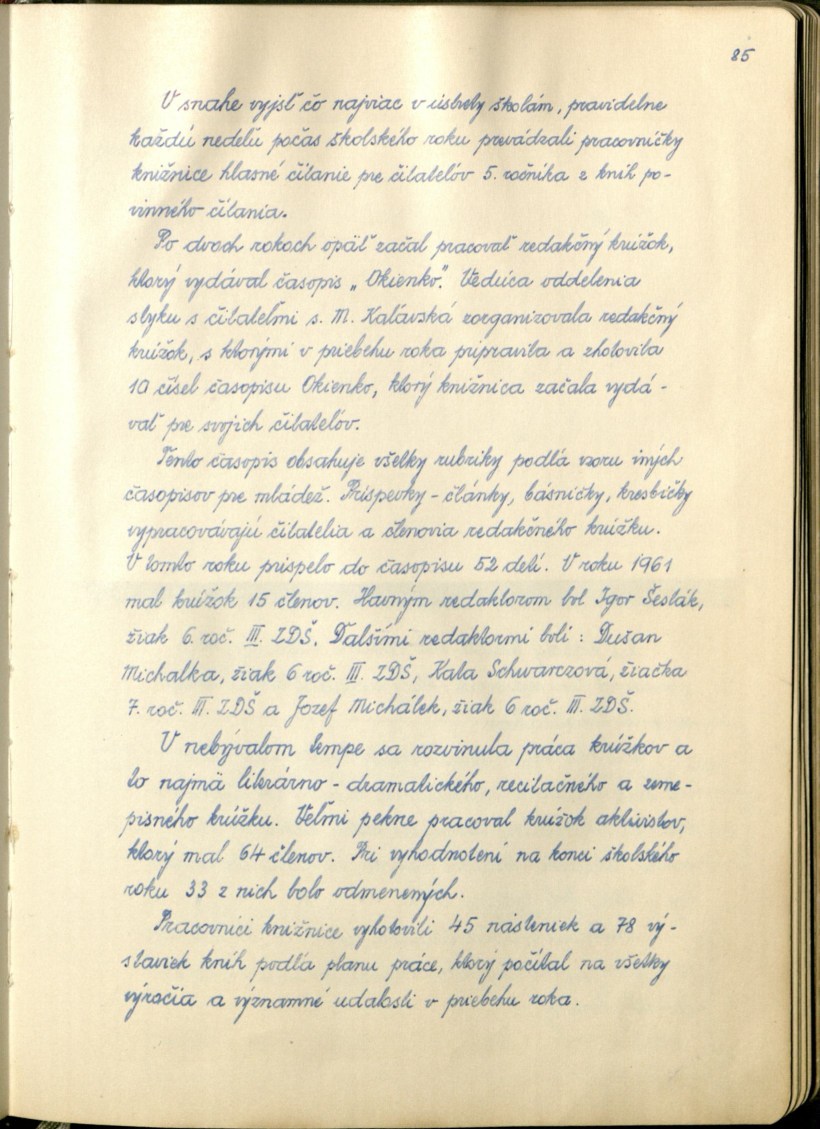 85
V snahe vyjsť čo najviac v ústrety školám, pravidelne
každú nedeľu počas školského roku prevádzali pracovníčky
knižnice hlasné čítanie pre čitateľov 5. ročníka z kníh po-
vinného čítania.
Po dvoch rokoch opäť začal pracovať redakčný krúžok,
ktorý vydával časopis „Okienko". Vedúca oddelenia
styku s čitateľmi s. M. Kaľavská zorganizovala redakčný
krúžok, s ktorými v priebehu roka pripravila a zhotovila
10 čísel časopisu Okienko, ktorý knižnica začala vydá-
vať pre svojich čitateľov.
Tento časopis obsahuje všetky rubriky podľa vzoru iných
časopisov pre mládež. Príspevky - články, básničky, kresbičky
vypracovávajú čitatelia a členovia redakčného krúžku.
V tomto roku prispelo do časopisu 52 detí. V roku 1961
mal krúžok 15 členov. Hlavným redaktorom bol Igor Šesták,
žiak 6. roč. III. ZDŠ. Ďalšími redaktormi boli : Dušan
Michalka, žiak 6 roč. III. ZDŠ, Kata Schwarczová, žiačka
7. roč. III. ZDŠ a Jozef Michálek, žiak 6 roč. III. ZDŠ.
V nebývalom tempe sa rozvinula práca krúžkov a
to najmä literárno - dramatického, recitačného a zeme-
pisného krúžku. Veľmi pekne pracoval krúžok aktivistov,
ktorý mal 64 členov. Pri vyhodnotení na konci školského
roku 33 z nich bolo odmenených.
Pracovníci knižnice vyhotovili 45 násteniek a 78 vý-
staviek kníh podľa planu práce, ktorý počítal na všetky
výročia a významné udalosti v priebehu roka.